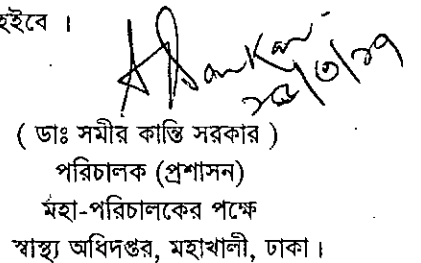 হইবে ।
( ডাঃ সমীর কান্তি সরকার )
পরিচালক (প্রশাসন)
মহা-পরিচালকের পক্ষে
স্বাস্থ্য অধিদপ্তর, মহাখালী, ঢাকা।